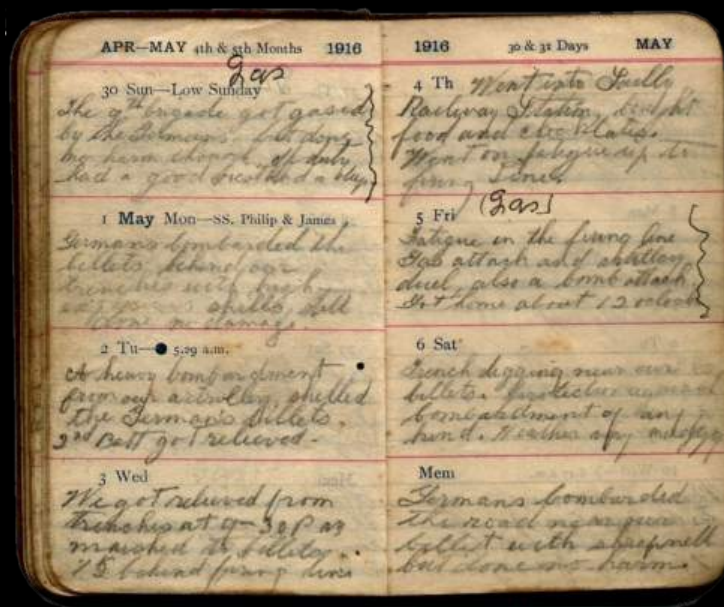 APR—MAY 4th & 5th Months 1916
Gas
30 Sun—Low Sunday
The 9th brigade got gased
by the Germans but done
no harm though. off duty
had a good rest had a sleep
1 May Mon—SS. Philip & James
Germans bombarded the
billets behind our
trenches with high
shells, still
done no damage.
2 Tu—● 5.29 a.m.
A heavy bombardment
from our artillery, shelled
the German's billets.
2nd Batt got relieved.
3 Wed
We got relieved from
trenches at 9-30 P.M
marched to billets
behind firing line
1916 30 & 31 Days MAY
4 Th Went into Sailly
Railway Station, bought
food and chocolates.
Went on fatigue up to
firing line.
5 Fri (Gas)
Fatigue in the firing line
Gas attack and artillery
duel, also a bomb attack
Got home about 12 oclock
6 Sat
Trench digging near our
billets. protection against
bombardment of any
kind. Weather
Mem
Germans bombarded
the road near our
billet with shrapnell
but done no harm.